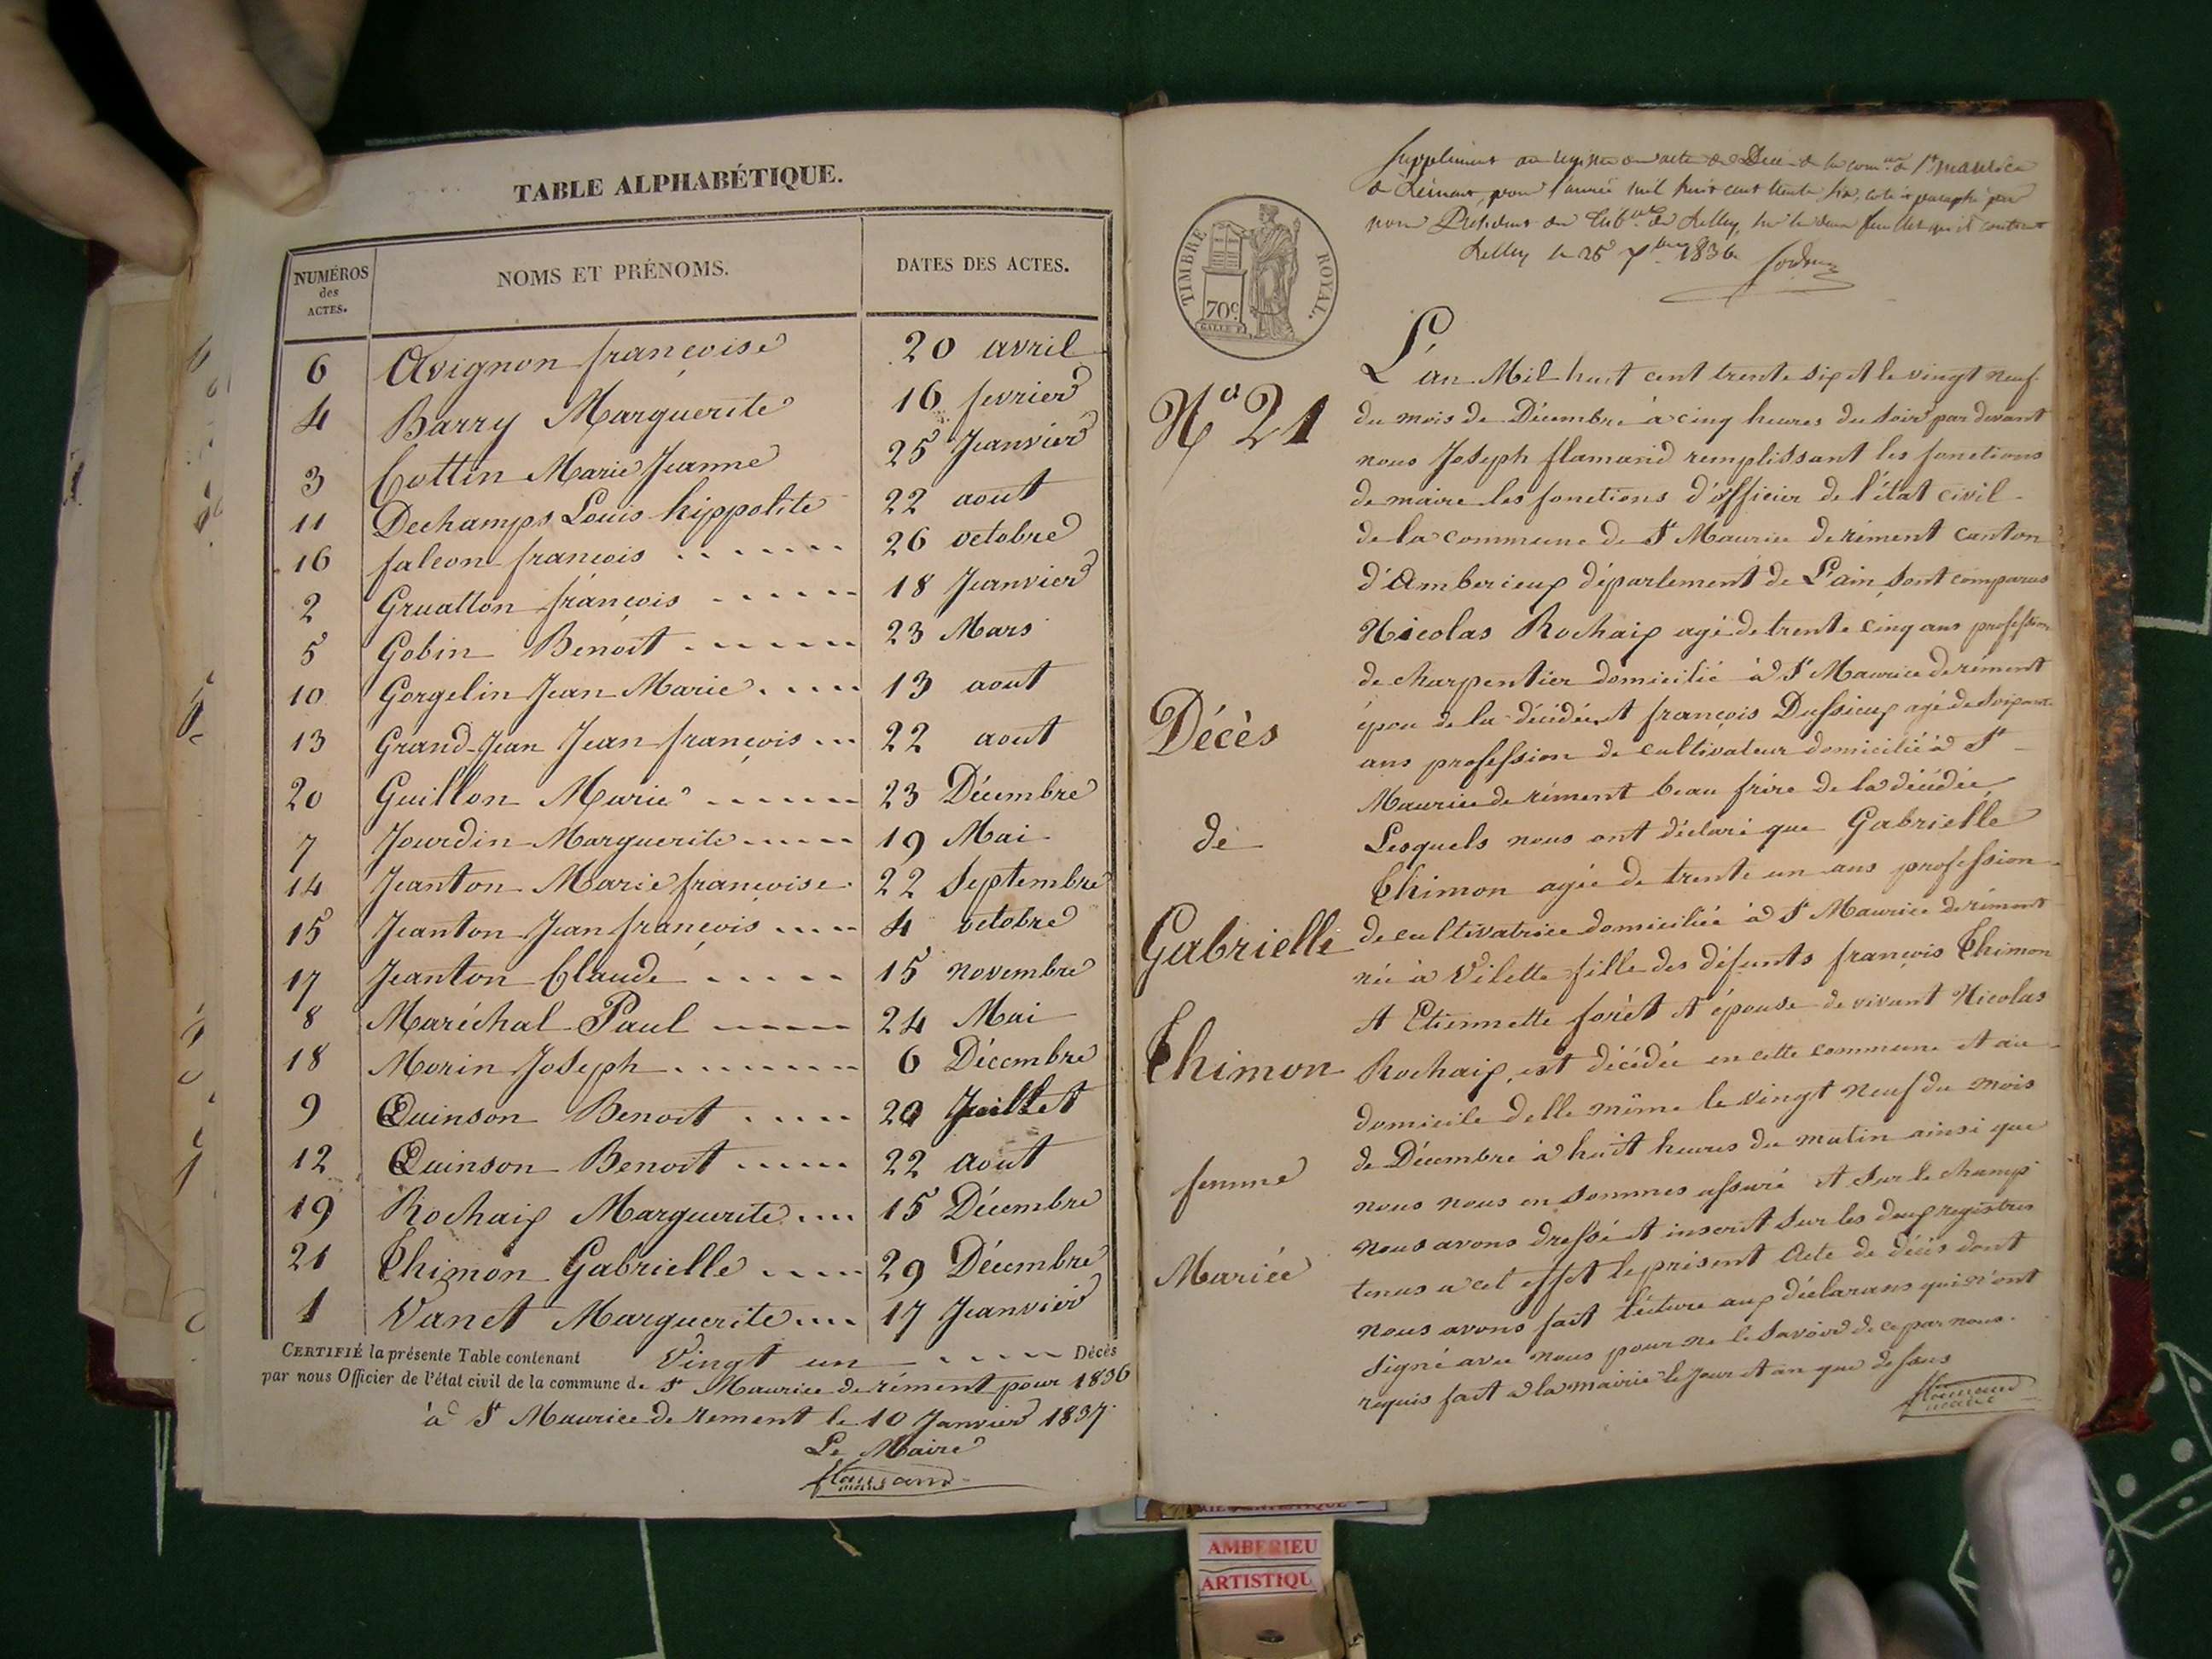 TABLE ALPHABÉTIQUE.
NUMÉROS des ACTES. NOMS ET PRÉNOMS. DATES DES ACTES.
6 Avignon françoise 20 avril
4 Barry Marguerite 16 fevrier
3 Cottin Marie Jeanne 25 Jeanvier
11 Dechamps Louis hippolite 22 aout
16 falcon françois 26 octobre
2 Gruatton françois 18 Jeanvier
5 Gobin Benoit 23 Mars
10 Gorgelin Jean Marie 13 aout
13 Grand-Jean Jean françois 22 aout
20 Guillon Marie 23 Décembre
7 Jourdin Marguerite 19 Mai
14 Jeanton Marie françoise 22 Septembre
15 Jeanton Jean françois 4 octobre
17 Jeanton Claude 15 novembre
8 Maréchal Paul 24 Mai
18 Morin Joseph 6 Décembre
9 Quinson Benoit 20 Juillet
12 Quinson Benoit 22 aout
19 Rochaix Marguerite 15 Décembre
21 Thimon Gabrielle 29 Décembre
1 Vanet Marguerite 17 Jeanvier
CERTIFIÉ la présente Table contenant Vingt un Décès
par nous Officier de l'état civil de la commune de St Maurice de rément pour 1836
à St Maurice de rement le 10 Janvier 1837
Le Maire
flamand
Supplément au registre des actes de Décès de la comune de St maurice
de Rémens, pour l'année mil huit cent trente six, coté et paraphé par
nous Président du de Belley, sur les deux feuilles qu'il contient
Belley le 26 1836
TIMBRE ROYAL.
70c
L'an Mil huit cent trente six et le vingt neuf
du mois de Décembre à cinq heures du soir par devant
nous Joseph flamand remplissant les fonctions
de maire les fonctions d'officier de l'état civil
de la commune de St Maurice de rément canton
d'Amberieux département de L'ain, sont comparus
Nicolas Rochaix agé de trente cinq ans profession
de charpentier domicilié à St Maurice de rément
épou de la décédée et françois Dussieux agé de soixante
ans profession de cultivateur domicilié à St
Maurice de rément beau frère de la décédée
Lesquels nous ont déclaré que Gabrielle
Thimon agée de trente un ans profession
de cultivatrice domiciliée à St Maurice de rément
née à Vilette fille des défunts françois Thimon
et Etiennette forêt et épouse de vivant Nicolas
Rochaix, est décédée en cette commune et au
domicile delle même le vingt neuf du mois
de Décembre à huit heures du matin ainsi que
nous nous en sommes assuré et sur le champ
nous avons dressé et inscrit sur les deux registres
tenus a cet effet le présent acte de décès dont
nous avons fait lecture aux déclarans qui n'ont
signé avec nous pour ne le savoir de ce par nous
requis fait à la mairie le jour et an que dessus
flamand
maire
No 21
Décès
de
Gabrielle
Thimon
femme
Mariée
AMBERIEU
ARTISTIQU